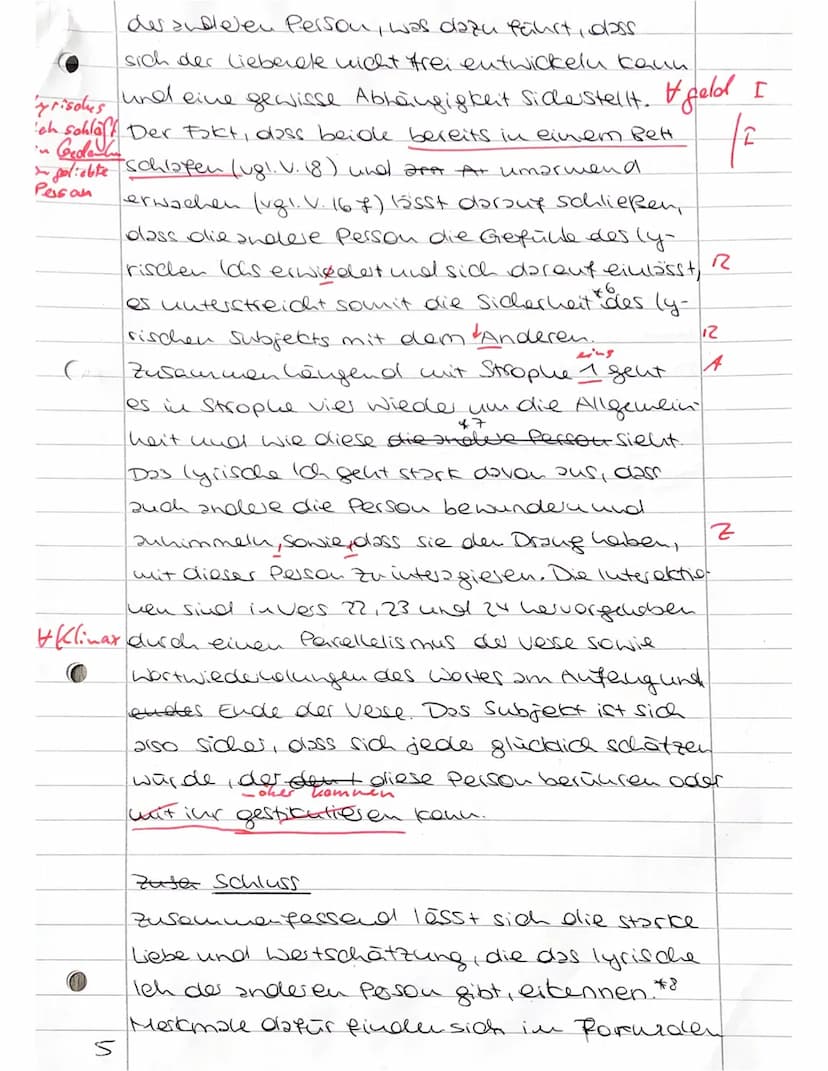 der anderen Person, was dazu führt, dass
sich der Liebende nicht frei entwickeln kann
und eine gewisse Abhängigkeit sicherstellt. geld I
lyrisches Ich schläft in Gedanken geliebte Person
Der Fakt, dass beide bereits in einem Bett I
schlafen (vgl. V. 18) und umarmend
erwachen (vgl. V. 16 f) lässt darauf schließen,
dass die andere Person die Gefühle des ly-
rischen Ichs erwiedert und sich darauf einlässt, R
es unterstreicht somit die Sicherheit *6 des ly-
rischen Subjekts mit dem Anderen. R
Zusammenhängend mit Strophe 1 eins geht A
es in Strophe vier wieder um die Allgemein-
heit und wie diese *7 die andere Person sieht.
Das lyrische Ich geht stark davon aus, dass
auch andere die Person bewundern und
anhimmeln, sowie, dass sie den Drang haben, Z
mit dieser Person zu interagieren. Die Interaktio-
nen sind in Vers 22, 23 und 24 hervorgehoben
Klimax durch einen Parallelismus der Verse sowie
Wortwiederholungen des Wortes am Anfang und
endes Ende der Verse. Das Subjekt ist sich
also sicher, dass sich jede glücklich schätzen
würde, der diese Person berühren oder
kommen
mit ihr gestikulieren kann.
Schluss
Zusammenfassend lässt sich die starke
Liebe und Wertschätzung, die das lyrische
Ich der anderen Person gibt, erkennen. *8
Merkmale dafür finden sich im Formalen
5